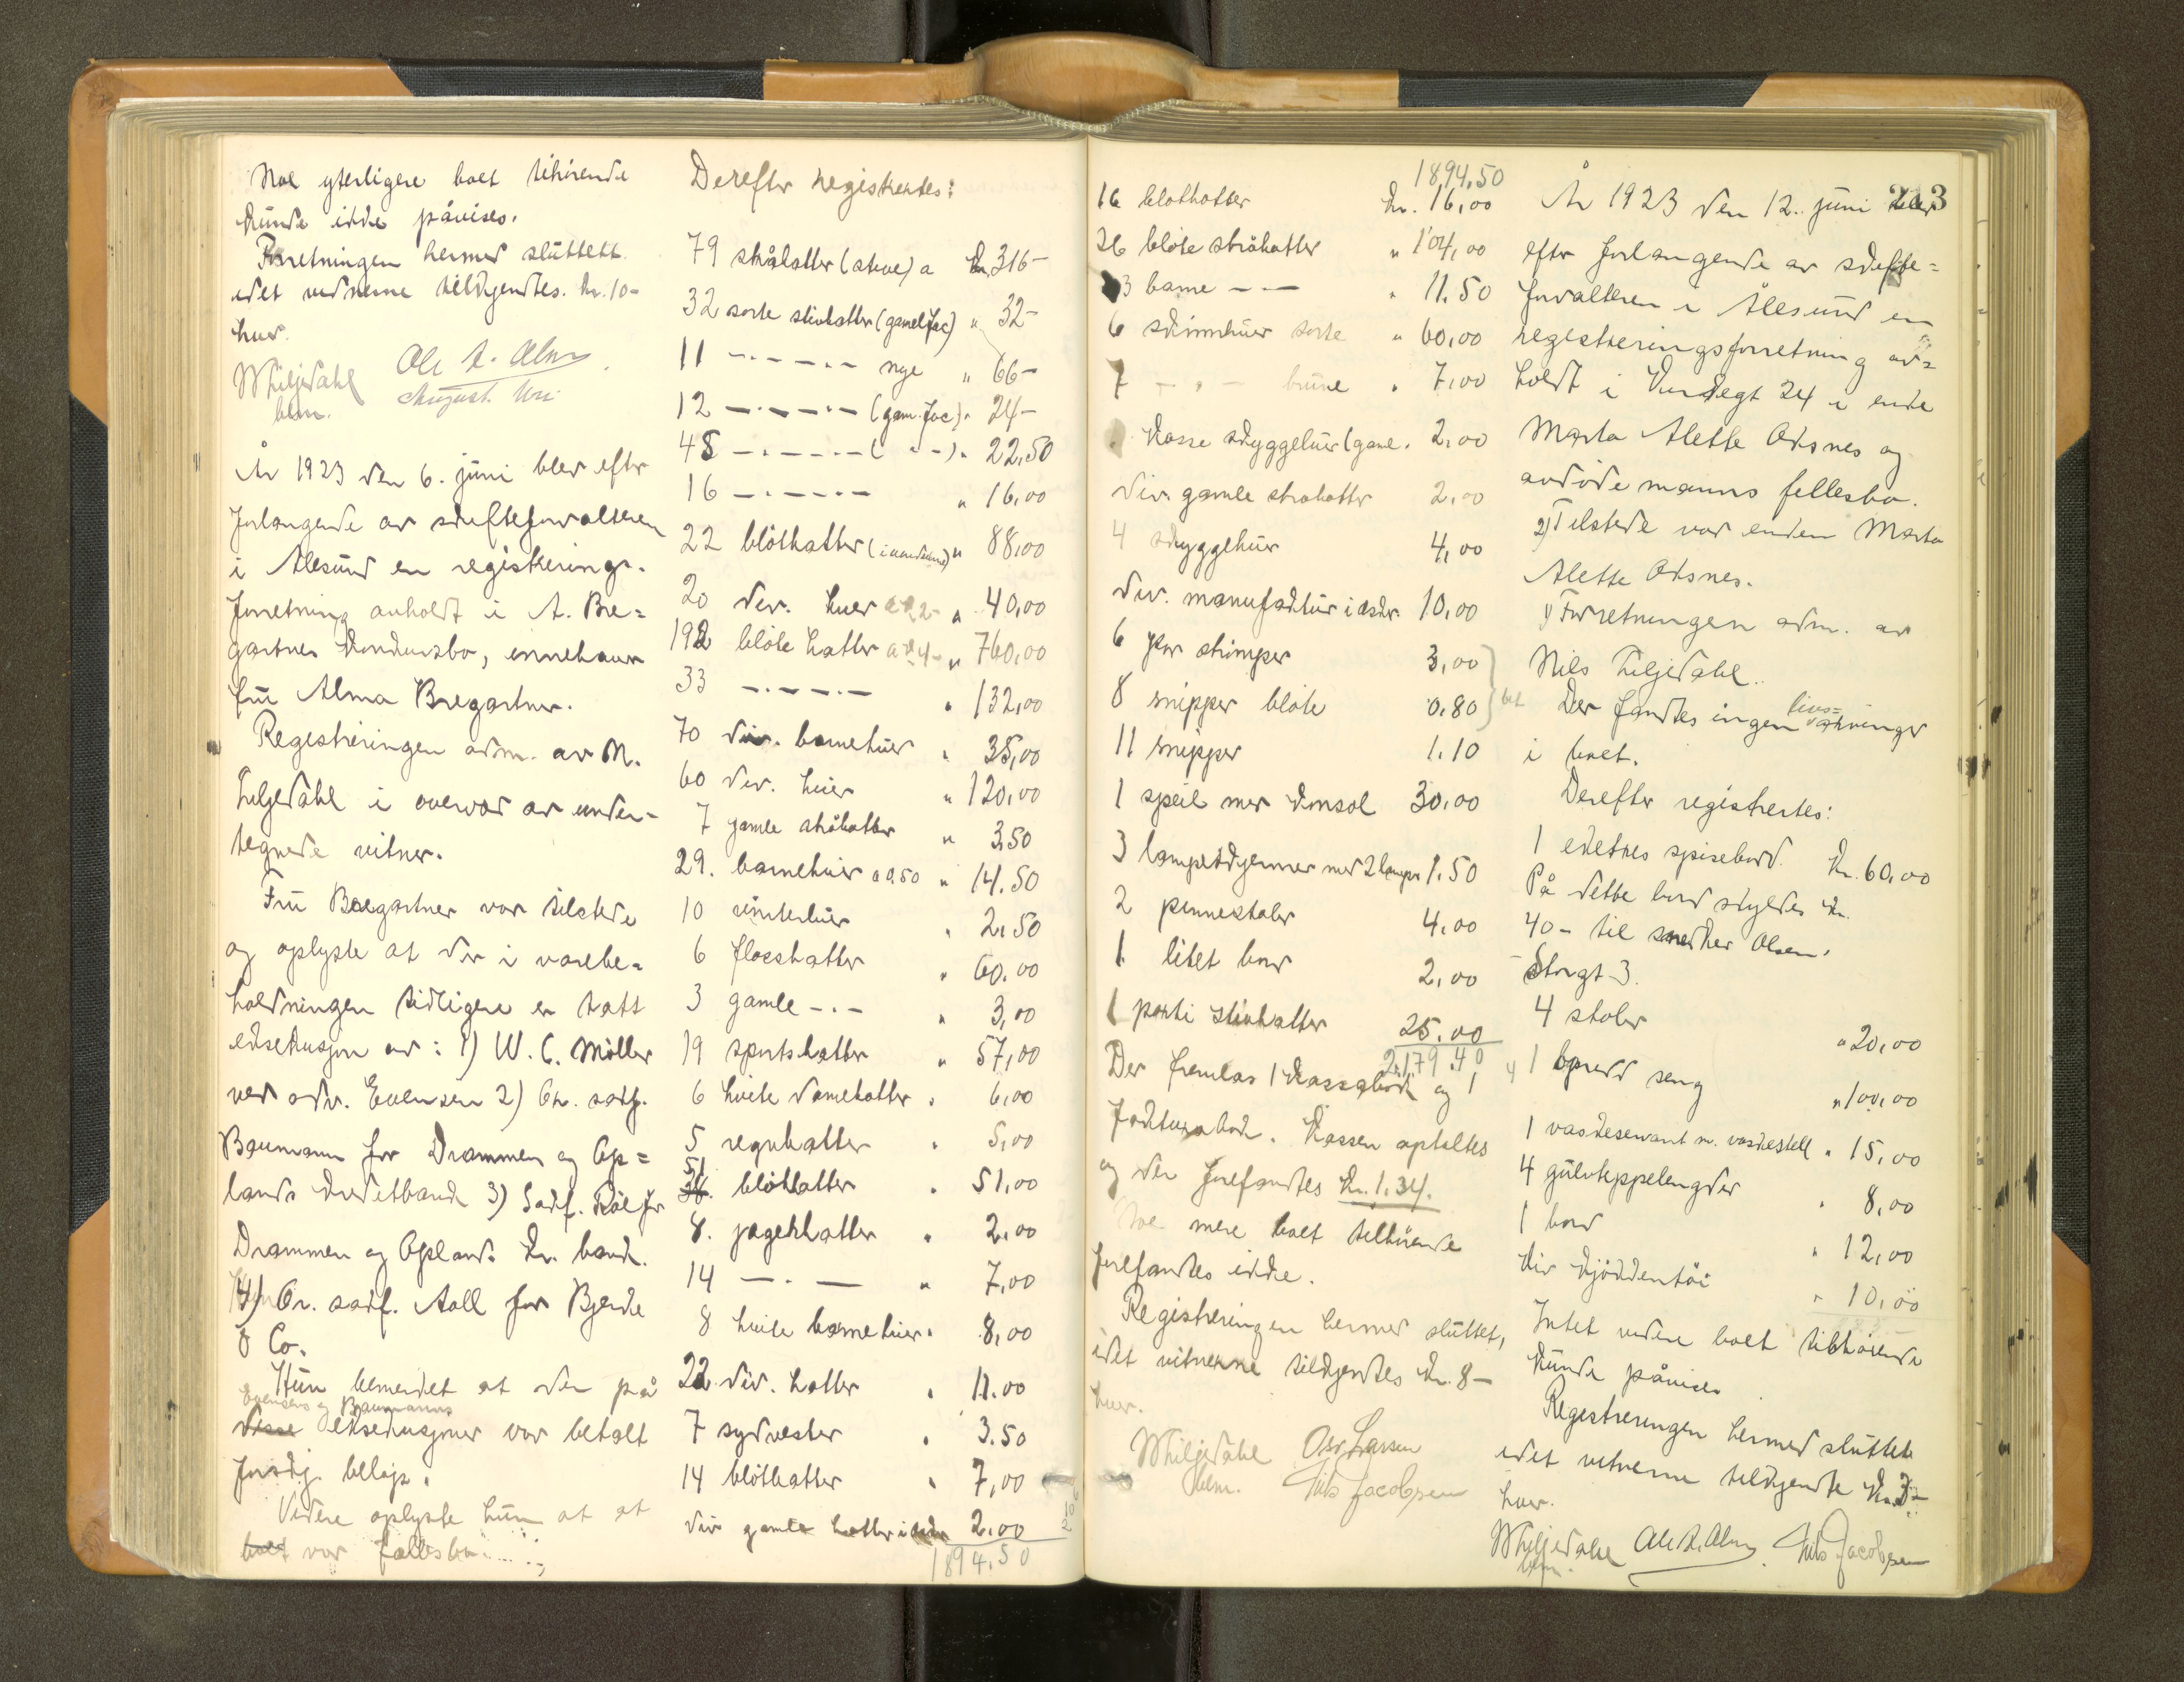 Noe yterligere boet tilhørende
kunde ikke påvises.
Forretningen hermed sluttett
idet vidnerne tilkjendtes kr. 10-
hver.
NLiljedahl Ole A. Alnes
blm. August Uri
År 1923 den 6. juni blev efter
forlangende av skifteforvalteren
i Ålesund en registrerings-
forretning avholdt i A. Bre=
gartner konkursbo, innehaver
fru Alma Bregartner.
Registreringen adm. av N.
Liljedahl i overvær av under-
tegnede vitner.
Fru Bregartner var tilstede
og oplyste at der i varebe=
holdningen tidligere er tatt
eksekusjon av: 1) W. C. Møller
ved adv. Evensen 2) Or. sakf.
Baumann for Drammen og Op=
lands kreditbank 3) Sakf. Röe for
Drammen og Oplands kr. bank.
4) Or. sakf. Aall for Bjerke
& Co.
Hun bemerket at der på
Evensens og Baumanns
disse eksekusjoner var betalt
forskj. beløp.
Videre oplyste hun at at
boet var fællesbo.
Derefter registrertes:
79 stråhatter (stive) a kr. 316-
32 sorte stivhatter (gamel fac) " 32-
11 -.-.-.- nye " 66-
12 -.-.-.- (gam. fac) " 24-
45 -.-.-.- ( - - ) " 22,50
16 -.-.-.- " 16,00
22 blöthatter " 88,00
20 div. huer a 2- " 40,00
192 blöte hatter a 4- " 760,00
33 -.-.-.- " 132,00
70 div. barnehuer " 35,00
60 div. huer " 120,00
7 gamle stråhatter " 3,50
29. barnehuer a 0,50 " 14.50
10 vinterhuer " 2,50
6 flosshatter " 60.00
3 gamle -.- " 3,00
19 sportshatter " 57,00
6 hvite damehatter " 6,00
5 regnhatter " 5,00
51 blöthatter " 51,00
8. jagerhatter " 2,00
14 -.- " 7,00
8 hvite barnehuer " 8,00
22 div. hatter " 11.00
7 sydvester " 3.50
14 blöthatter " 7,00
div gamle hatter i eske 2,00
1894.50
213
1894,50
16 blöthatter kr. 16,00
26 blöte stråhatter " 104,00
23 barne - - " 11.50
6 skinnhuer sorte " 60,00
7 - " - brune " 7,00
1 kasse skyggeluer (gamle. 2,00
Div. gamle stråhatter 2,00
4 skyggehuer 4,00
Div. manufaktur i esker 10,00
6 par strömper 3,00
8 snipper blöte 0.80
11 snipper 1.10
1 speil med konsol 30,00
3 lampeskjermer med 2 lamper 1.50
2 pinnestoler 4.00
1 litet bord 2,00
1 parti stivhatter 25.00
2.179.40
Der fremlas 1 kassabok og 1
fakturabok. Kassen optaltes
og der forefandtes kr. 1,34.
Noe mere boet tilhörende
forefandtes ikke.
Registreringen hermed sluttet,
idet vitnerne tilkjendtes kr. 8-
hver.
NLiljedahl Osv. Larsen
blm. Nils Jacobsen
År 1923 den 12. juni blev
efter forlangende av skifte=
forvalteren i Ålesund en
registreringsforretning av=
holdt i 24 i enke
Marta Alette Otsnes og
avdöde manns fellesbo.
2) Tilstede var enken Marta
Alette Otsnes.
1) Forretningen adm. av
Nils Liljedahl.
Der fandtes ingen livs=
i boet.
Derefter registrertes:
1 eketres spisebord kr. 60,00
På dette bord skyldes kr.
40- til snedker Olsen,
Storgt 3.
4 stoler " 20,00
1 opredd seng " 100,00
1 vaskeservant m. vaskestell " 15,00
4 gulvteppelengder " 8,00
1 bord " 12,00
Div kjökkentöi " 10,00
Intet videre boet tilhörende
kunde påvises.
Registreringen hermed sluttet
idet vitnerne tilkjendtes kr. 3-
hver.
NLiljedahl Ole A. Alnes Nils Jacobsen
blm.